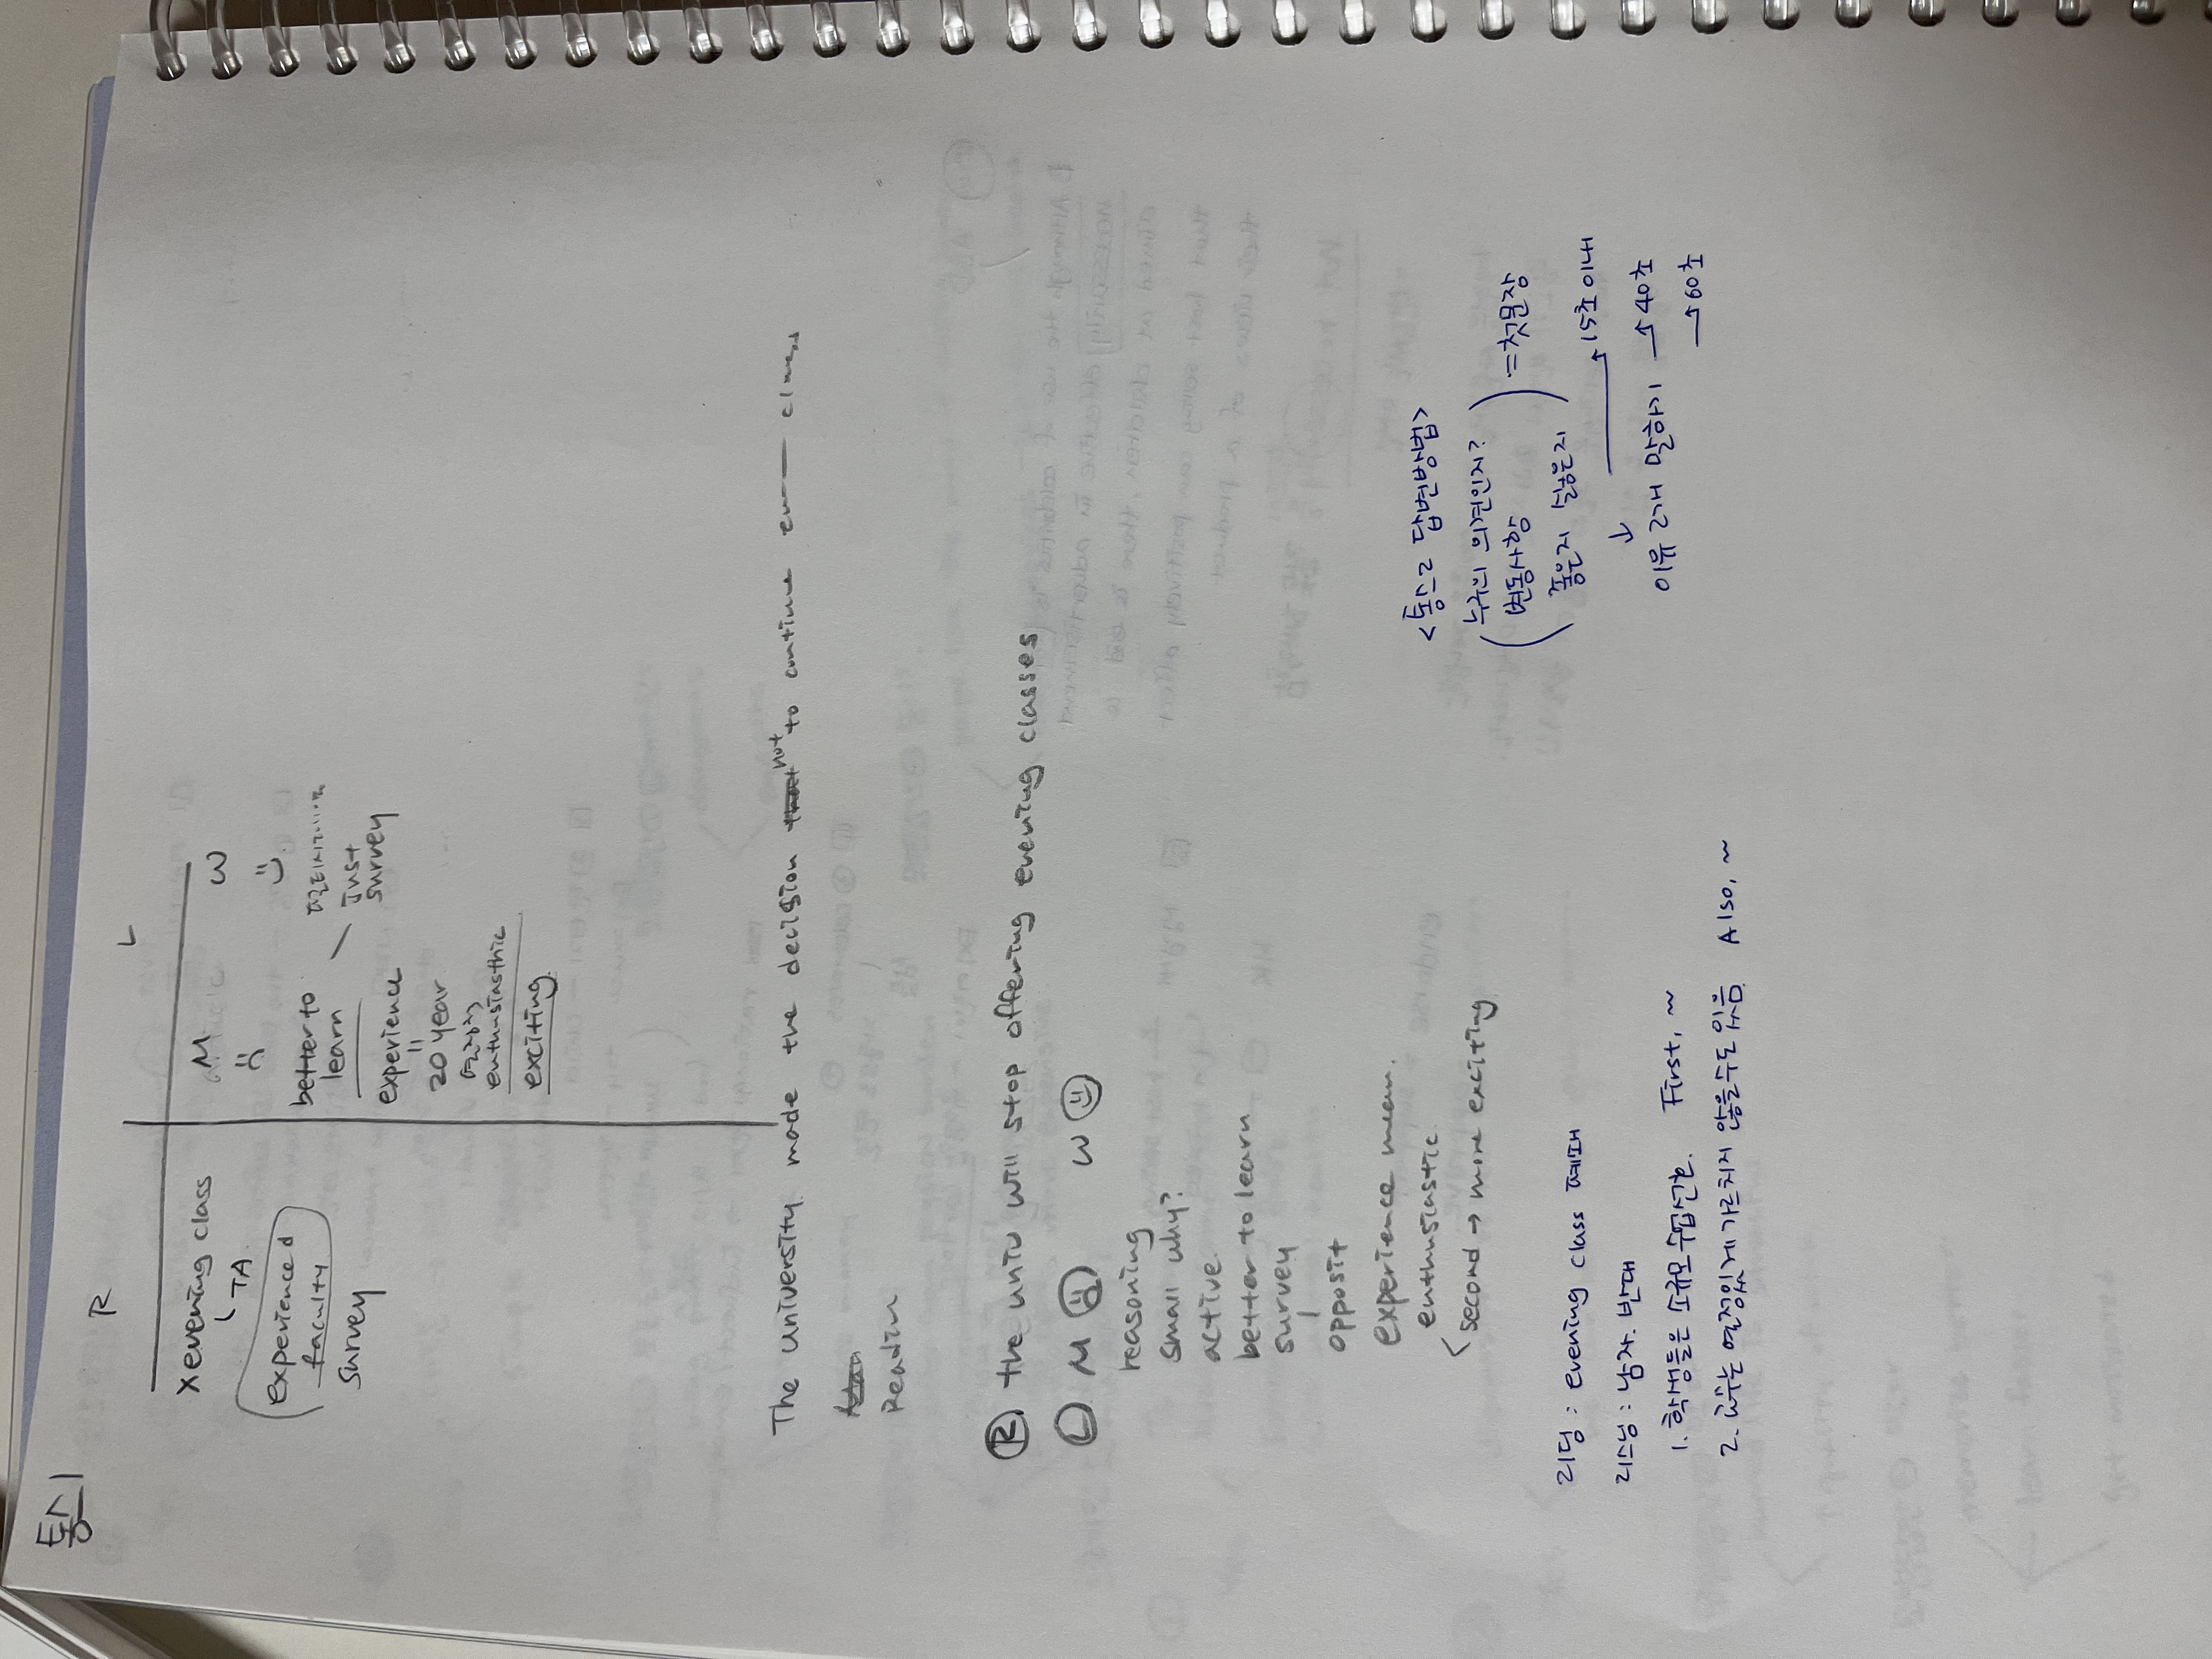 통1
R
L
x evening class
TA
experienced
faculty
survey
M
better to
learn
experience
20 year
enthusinsthic
exciting
W
Just
survey
The university made the decision not to continue class
Readin
Ⓡ the univ will stop offering evening classes
Ⓛ M W
reasoning
small why?
active
better to learn
survey
opposit
experience mean.
enthusiastic
second → more exciting
리딩 : evening class 폐파
리스닝 : 남자. 반대
1. 학생들은 소규모수업선호. First, ~
2. 교수는 열정있게 가르치지 않을수도 있음 Also, ~
<통스2 답변방법>
누구의 의견인지?
변동사항 = 첫문장
좋은지 싫은지
→ 15초 이내
↓
이유 2개 말하기 → 40초
→ 60초